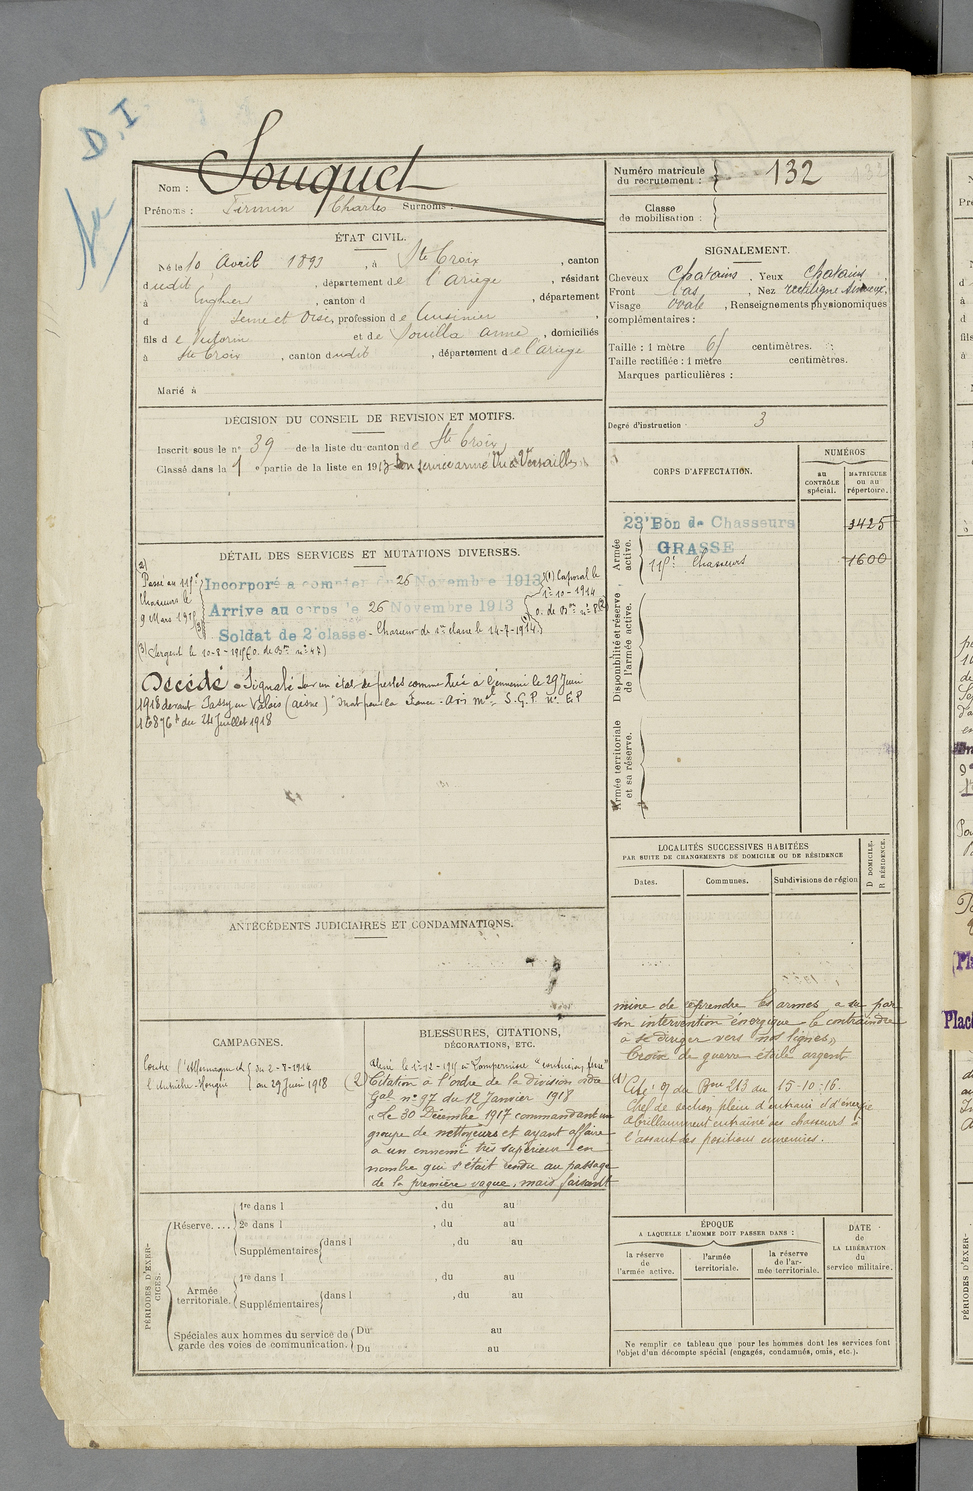 D.I
Nom : Souquet
Prénoms : Firmin Charles Surnoms :
Numéro matricule du recrutement : 132
Classe de mobilisation :
ÉTAT CIVIL.
Né le 10 Avril 1893, à Ste Croix, canton
dudit, département de l'ariège, résidant
à Enghien, canton d , département
d Seine et Oise, profession de Cuisinier,
fils de Victorin et de Souilla Anne, domiciliés
à Ste Croix, canton dudit, département de l'ariège
Marié à
SIGNALEMENT.
Cheveux Chatains. Yeux Chatains,
Front bas, Nez rectiligne
Visage Ovale, Renseignements physionomiques
complémentaires :
Taille : 1 mètre 61 centimètres.
Taille rectifiée : 1 mètre centimètres.
Marques particulières :
Degré d'instruction 3
DÉCISION DU CONSEIL DE REVISION ET MOTIFS.
Inscrit sous le n° 39 de la liste du canton de Ste Croix,
Classé dans la 1e partie de la liste en 1913 Bon service armé Vu à Versailles
DÉTAIL DES SERVICES ET MUTATIONS DIVERSES.
(2)
Passé au 115e
Chasseurs le
9 Mars 1915
Incorporé à compter du 26 Novembre 1913
Arrivé au corps le 26 Novembre 1913
Soldat de 2e classe - Chasseur de 1re classe le 14-7-1914
(1) Caporal le
1er-10-1914
o. de Bon n° 8
(3) Sergent le 10-8-1915 (o. de Bon n° 47)
Décédé - Signalé sur un état de pertes comme tué à l'ennemi le 29 Juin
1918 devant Passy en Valois (aisne) "Mort pour la France - Avis mel S.G.P n° E.P
16876 du 24 Juillet 1918
CORPS D'AFFECTATION.
NUMÉROS
AU CONTRÔLE spécial.
MATRICULE OU AU répertoire.
Armée active.
23e Bon de Chasseurs 3425
GRASSE
115e Chasseurs 1600
Disponibilité et réserve de l'armée active.
Armée territoriale et sa réserve.
LOCALITÉS SUCCESSIVES HABITÉES
PAR SUITE DE CHANGEMENTS DE DOMICILE OU DE RÉSIDENCE
D DOMICILE. R RÉSIDENCE.
Dates. Communes. Subdivisions de région
ANTÉCÉDENTS JUDICIAIRES ET CONDAMNATIONS.
CAMPAGNES.
Contre l'Allemagne et du 2-8-1914
l'Autriche-Hongrie au 29 Juin 1918
BLESSURES, CITATIONS,
DÉCORATIONS, ETC.
Blessé le 1-12-1915 à "contusion fesse"
(2) Citation à l'ordre de la division ordre
Gal n° 97 du 12 Janvier 1918
"Le 30 Décembre 1917 commandant un
groupe de nettoyeurs et ayant affaire
à un ennemi très supérieur en
nombre qui s'était rendu au passage
de la première vague, mais faisant
mine de reprendre les armes a su par
son intervention énergique le contraindre
à se diriger vers nos lignes"
Croix de guerre étoile argent
(1) Cité o/ du Bon 213 du 15-10-16.
Chef de section plein d'entrain et d'énergie
a brillamment entraîné ses chasseurs à
l'assaut des positions ennemies.
PÉRIODES D'EXERCICES.
Réserve....
1re dans l , du au
2e dans l , du au
Supplémentaires dans l , du au
Armée territoriale.
1re dans l , du au
Supplémentaires dans l , du au
Spéciales aux hommes du service de
garde des voies de communication.
Du au
Du au
ÉPOQUE
A LAQUELLE L'HOMME DOIT PASSER DANS :
la réserve de l'armée active.
l'armée territoriale.
la réserve de l'armée territoriale.
DATE de LA LIBÉRATION du service militaire.
Ne remplir ce tableau que pour les hommes dont les services font
l'objet d'un décompte spécial (engagés, condamnés, omis, etc.).